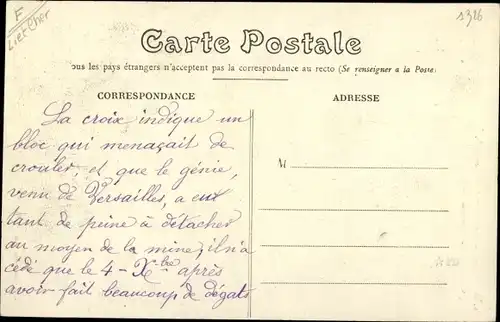 F
Loir et Cher
1326
Carte Postale
ous les pays étrangers n'acceptent pas la correspondance au recto (Se renseigner a la Poste)
CORRESPONDANCE
ADRESSE
M
La croix indique un
bloc qui menaçait de
crouler, et que le génie,
venu de Versailles, a eu
tant de peine à détacher
au moyen de la mine; il n'a
cédé que le 4 - Xbre après
avoir fait beaucoup de dégats